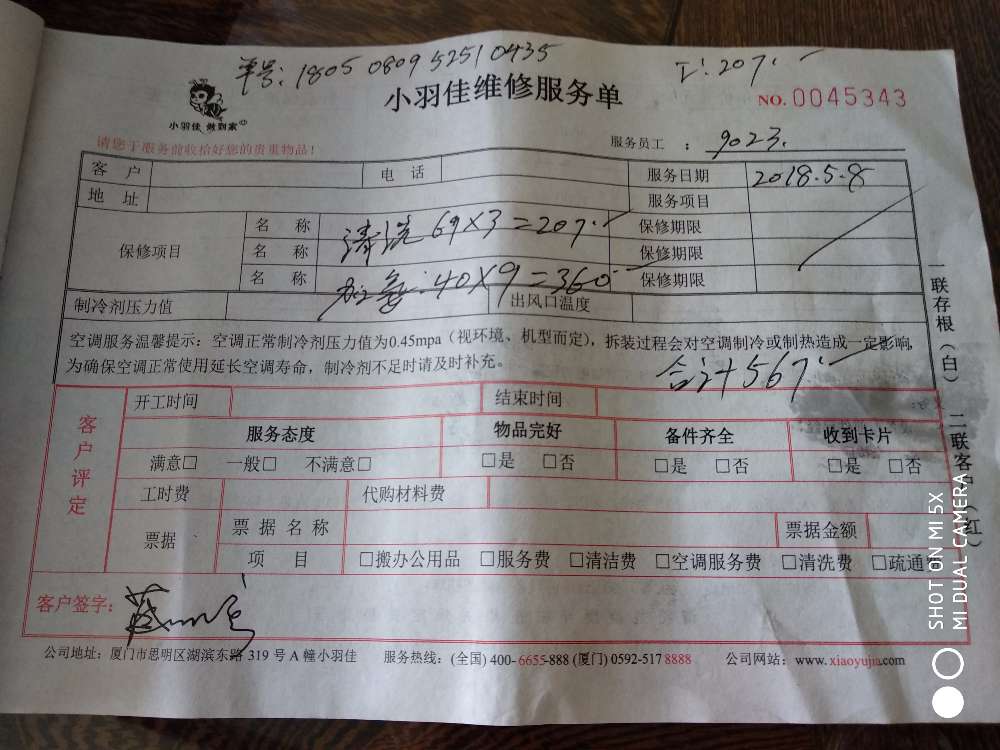 单号: 1805 0809 5251 0435
工: 207.
小羽佳 做到家
小羽佳维修服务单
NO. 0045343
请您于服务前收拾好您的贵重物品!
服务员工 : 9023.
客 户 电 话 服务日期 2018.5.8
地 址 服务项目
保修项目 名 称 清洗 69×3=207. 保修期限
名 称 保修期限
名 称 加氟: 40×9=360 保修期限
制冷剂压力值 出风口温度
空调服务温馨提示: 空调正常制冷剂压力值为0.45mpa (视环境、机型而定), 拆装过程会对空调制冷或制热造成一定影响,
为确保空调正常使用延长空调寿命, 制冷剂不足时请及时补充。
合计567.
一联存根(白) 二联客户(红)
客户评定
开工时间 结束时间
服务态度 物品完好 备件齐全 收到卡片
满意□ 一般□ 不满意□ □是 □否 □是 □否 □是 □否
工时费 代购材料费
票据 票据名称 票据金额
项 目 □搬办公用品 □服务费 □清洁费 □空调服务费 □清洗费 □疏通
客户签字:
公司地址: 厦门市思明区湖滨东路 319 号 A 幢小羽佳 服务热线: (全国) 400-6655-888 (厦门) 0592-517 8888 公司网站: www.xiaoyujia.com
SHOT ON MI 5X
MI DUAL CAMERA